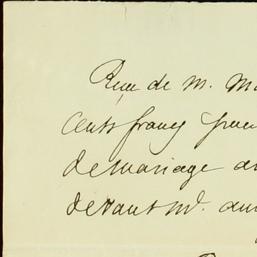 Reçu de M. Ma
Cents francs pour
de mariage
devant Md.